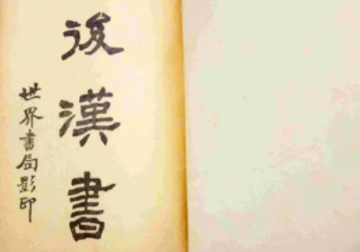 後漢書
世界書局影印